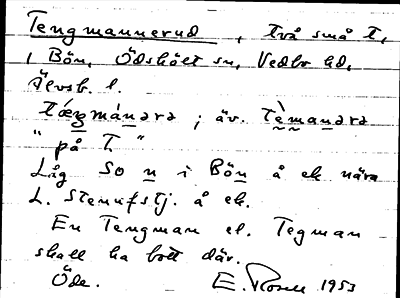 Tengmannerud, två små t,
i Bön, Ödskölt sn, Vedbo hd,
Älvsb. l.
tæ̀gmánərə ; äv. tèmanərə
" på T. "
Låg so n i Bön å ek nära
L. Stennfstj. å ek.
En Tengman el. Tegman
skall ha bott där.
Öde. E. Rosen 1953